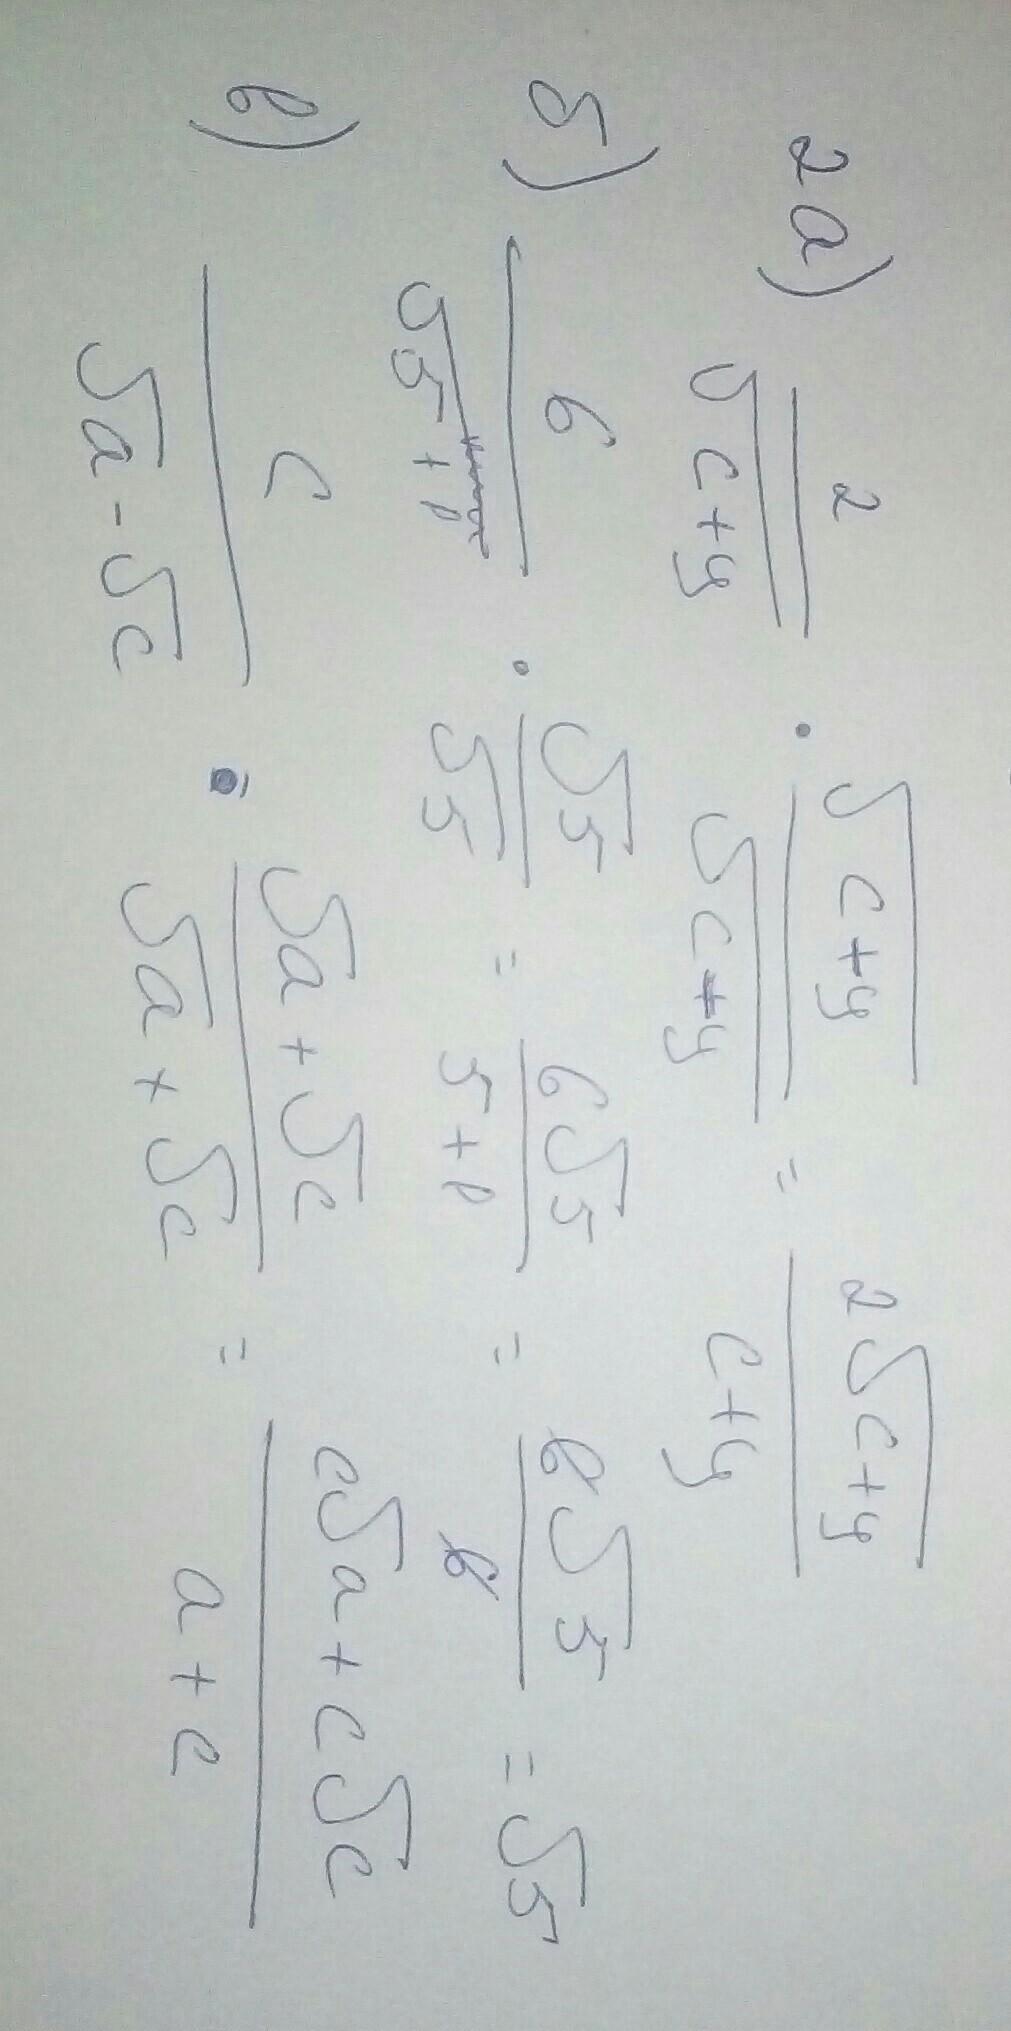 2 а) 2/√(c+y) · √(c+y)/√(c+y) = 2√(c+y)/(c+y)
б) 6/(√5+1) · √5/√5 = 6√5/(5+1) = 6√5/6 = √5
в) c/(√a-√c) · (√a+√c)/(√a+√c) = (c√a+c√c)/(a+c)